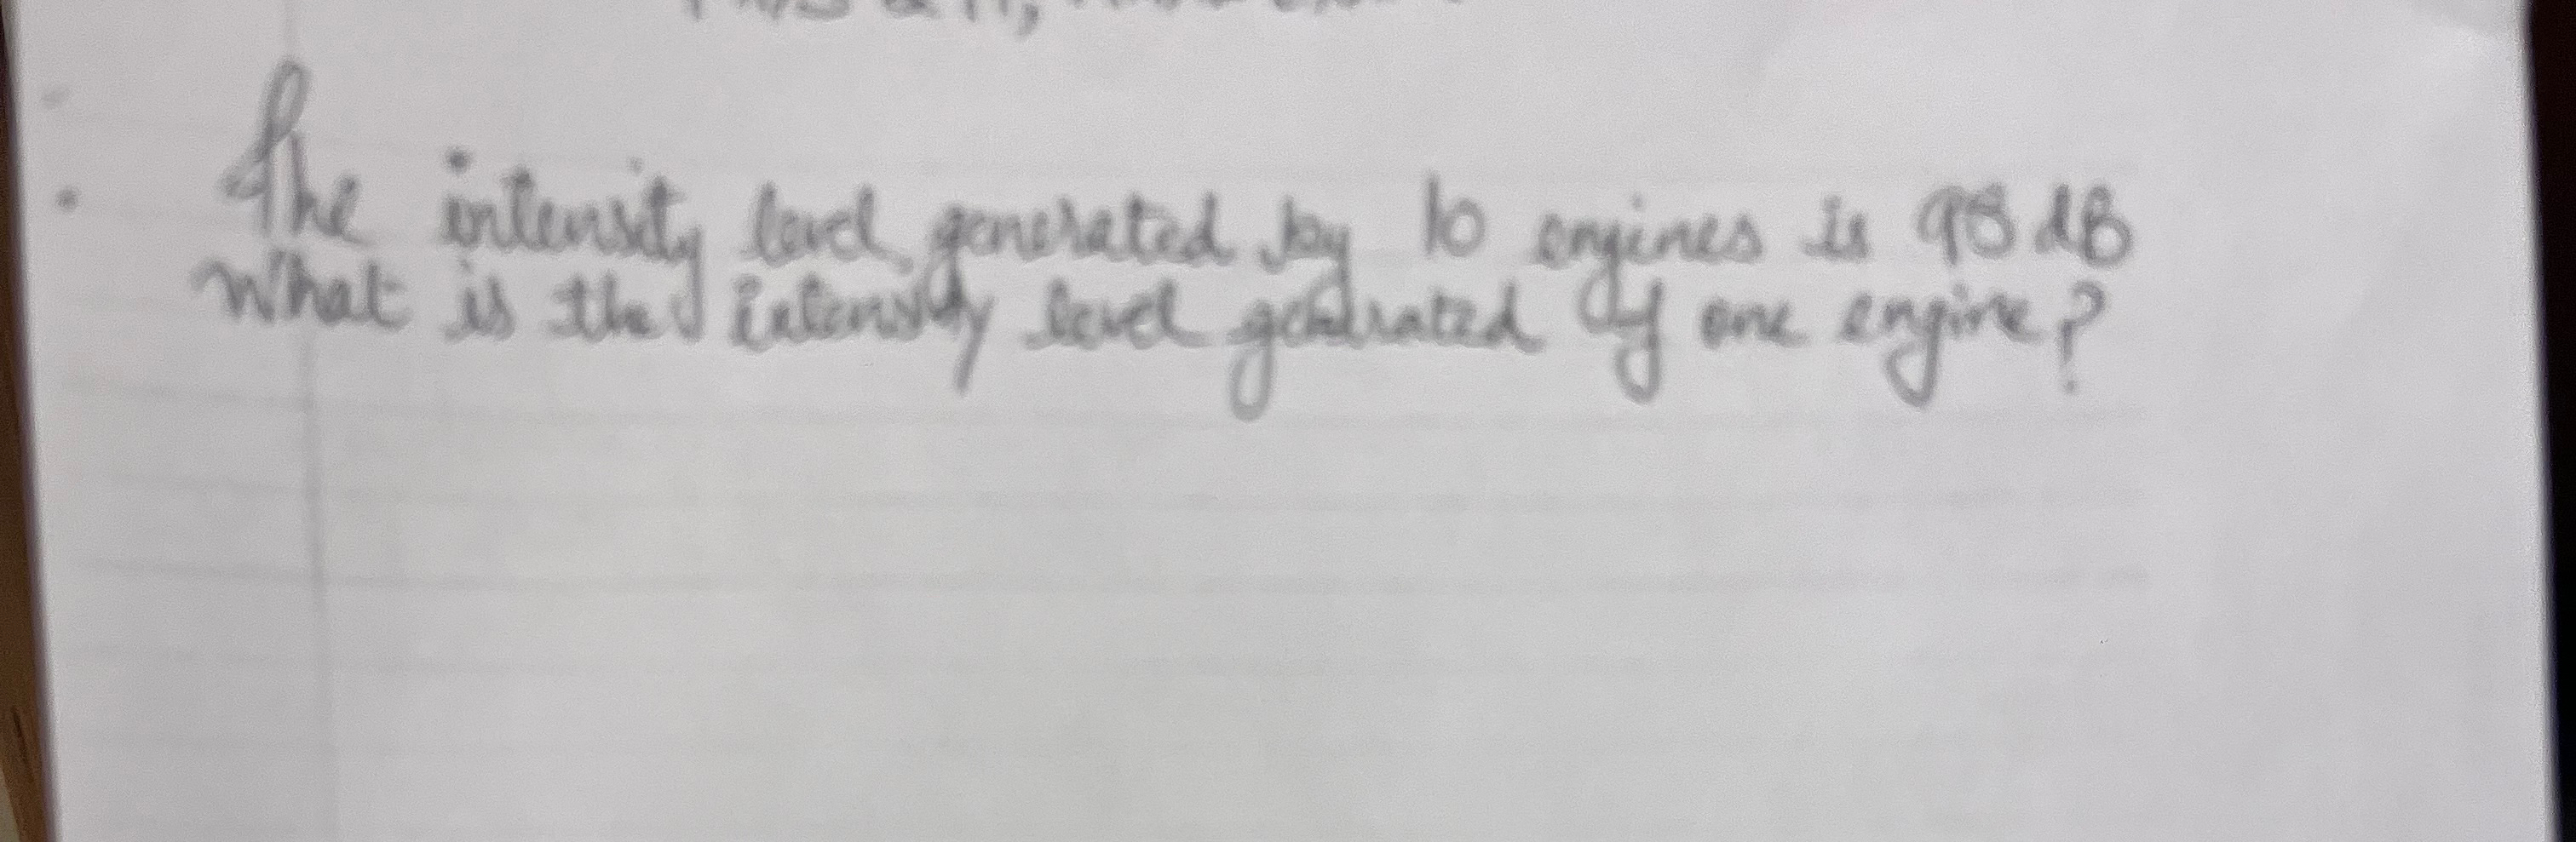 The intensity level generated by 10 engines is 98 dB
What is the intensity level generated of one engine?